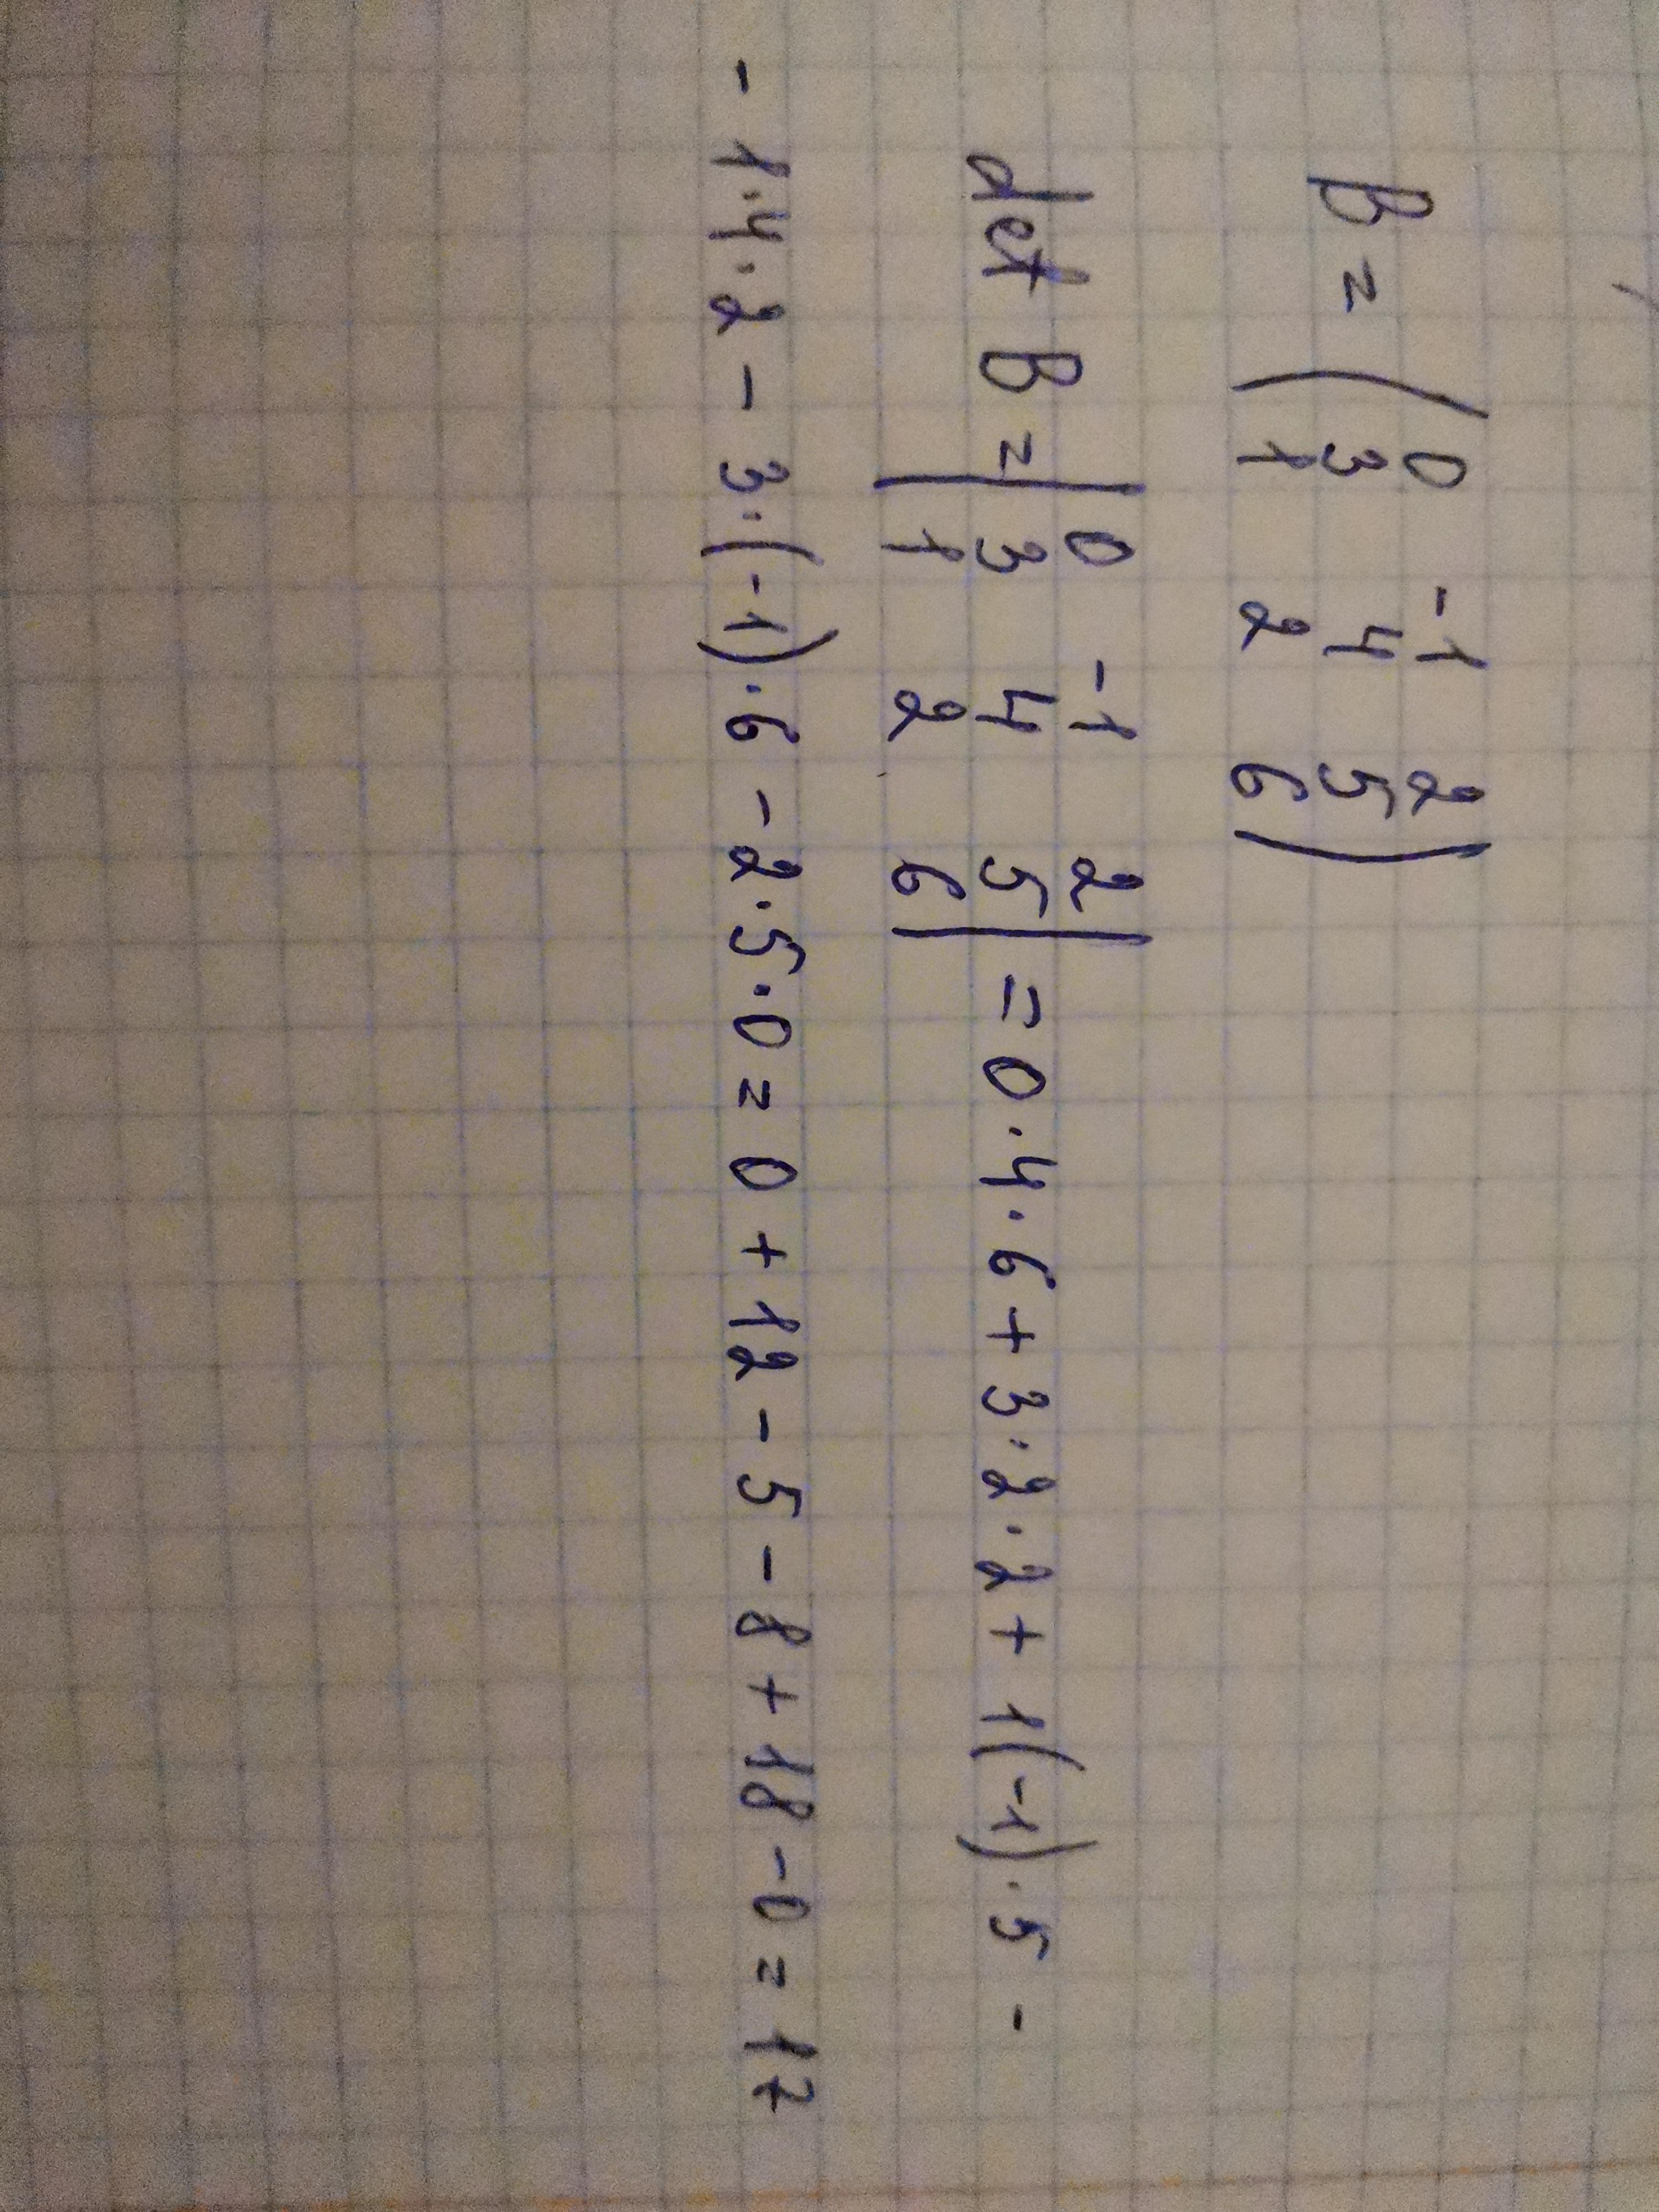 B = ( 0 -1 2
3 4 5
1 2 6 )
det B = | 0 -1 2
3 4 5
1 2 6 | = 0·4·6 + 3·2·2 + 1(-1)·5 -
- 1·4·2 - 3·(-1)·6 - 2·5·0 = 0 + 12 - 5 - 8 + 18 - 0 = 17